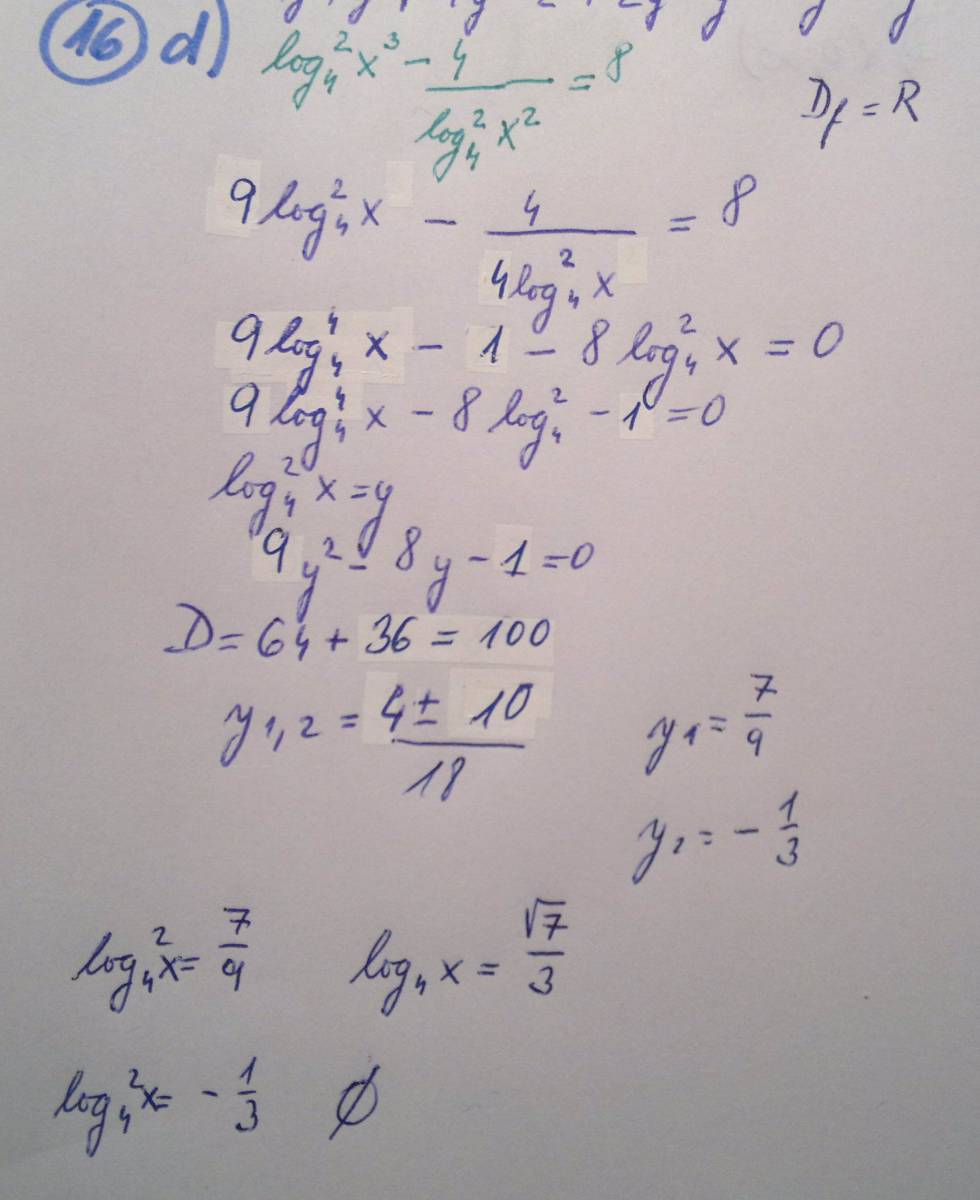 16 d)
log₄²x³ − 4/log₄²x² = 8
D_f = R
9log₄²x − 4/4log₄²x = 8
9log₄⁴x − 1 − 8log₄²x = 0
9log₄⁴x − 8log₄² − 1 = 0
log₄²x = y
9y² − 8y − 1 = 0
D = 64 + 36 = 100
y₁,₂ = 4 ± 10/18
y₁ = 7/9
y₂ = − 1/3
log₄²x = 7/9
log₄x = √7/3
log₄²x = − 1/3 ∅